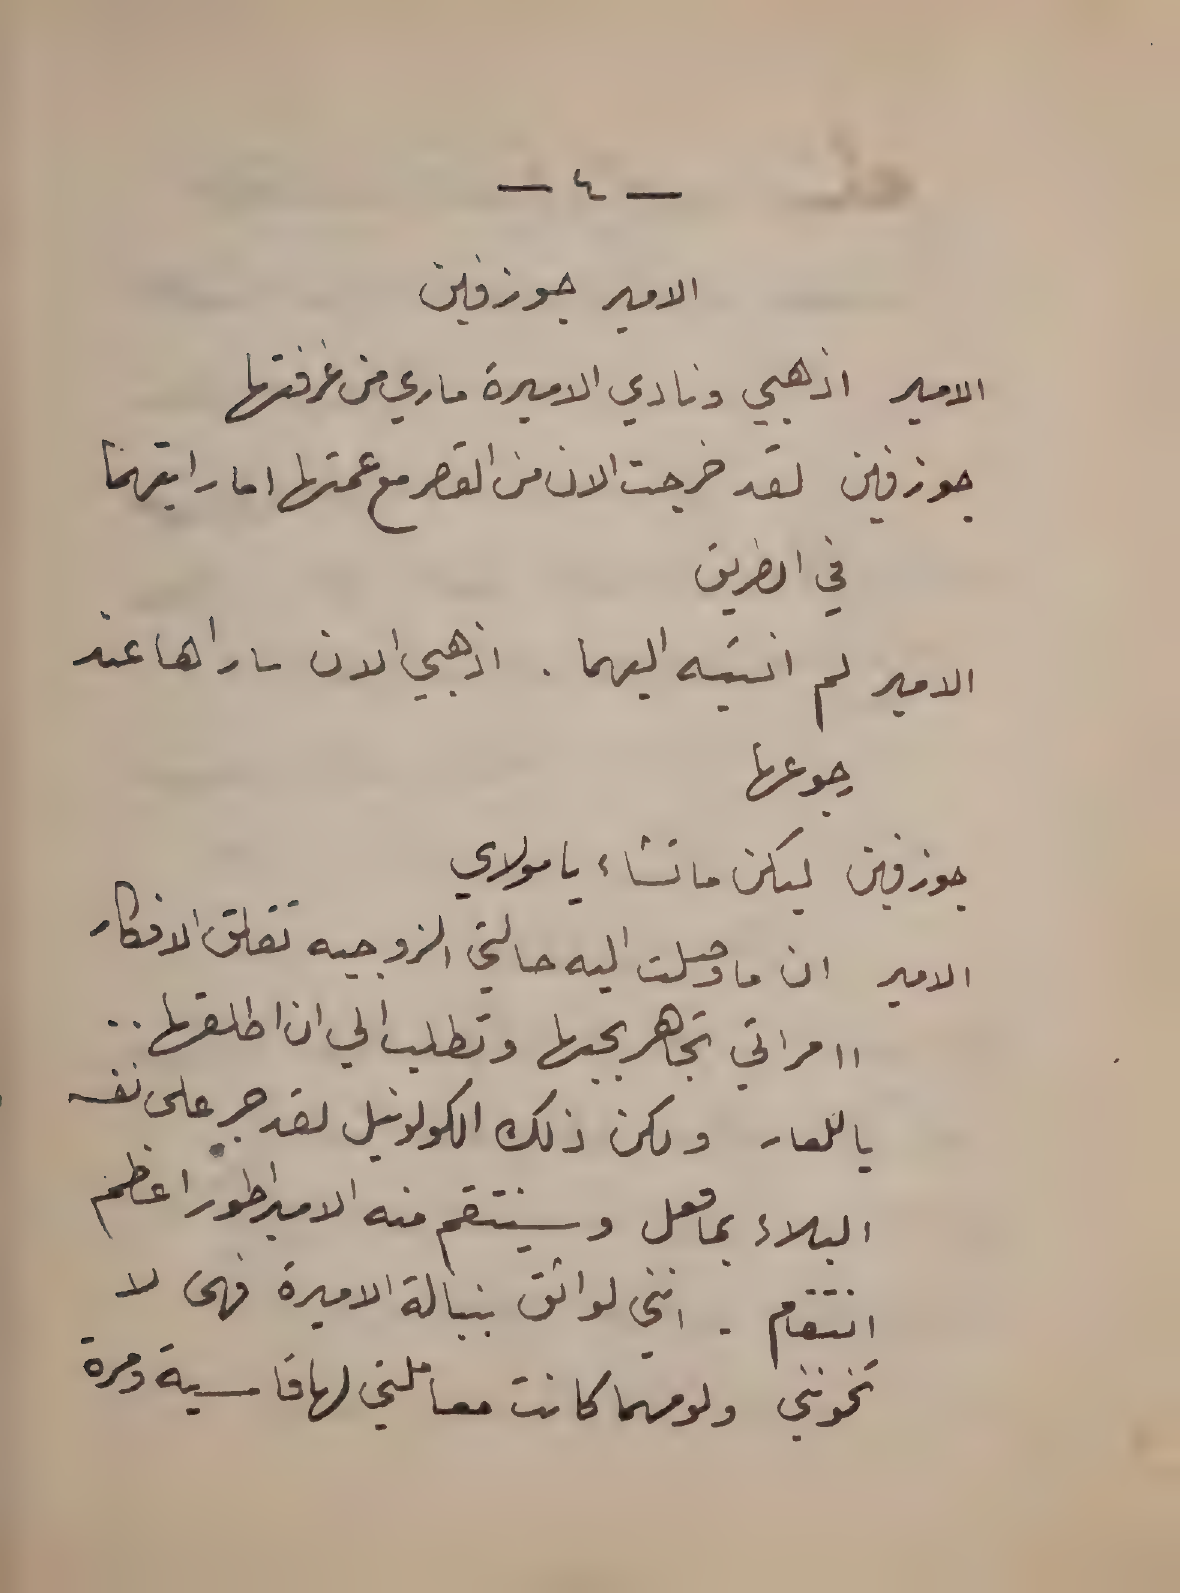 — ٤ —
الامير جوزفين
الامير اذهبي ونادي الاميرة ماري من غرفتها
جوزفين لقد خرجت الان من القصر مع عمتها اما رايتهما
في الطريق
الامير لم انتبه اليهما . اذهبي الان ساراها عند
رجوعها
جوزفين ليكن ما تشاء يا مولاي
الامير ان ما وصلت اليه حالتي الزوجيه تقلق الافكار
اامراتي تجاهر بحبها وتطلب الي ان اطلقها ..
ياللعار ولكن ذلك الكولونيل لقد جر على نفسه
البلاء بما فعل وسينتقم منه الامبراطور اعظم
انتقام . انني لواثق بنبالة الاميرة فهى لا
تخونني ولو مهما كانت معاملتي لها قاسية ومرة